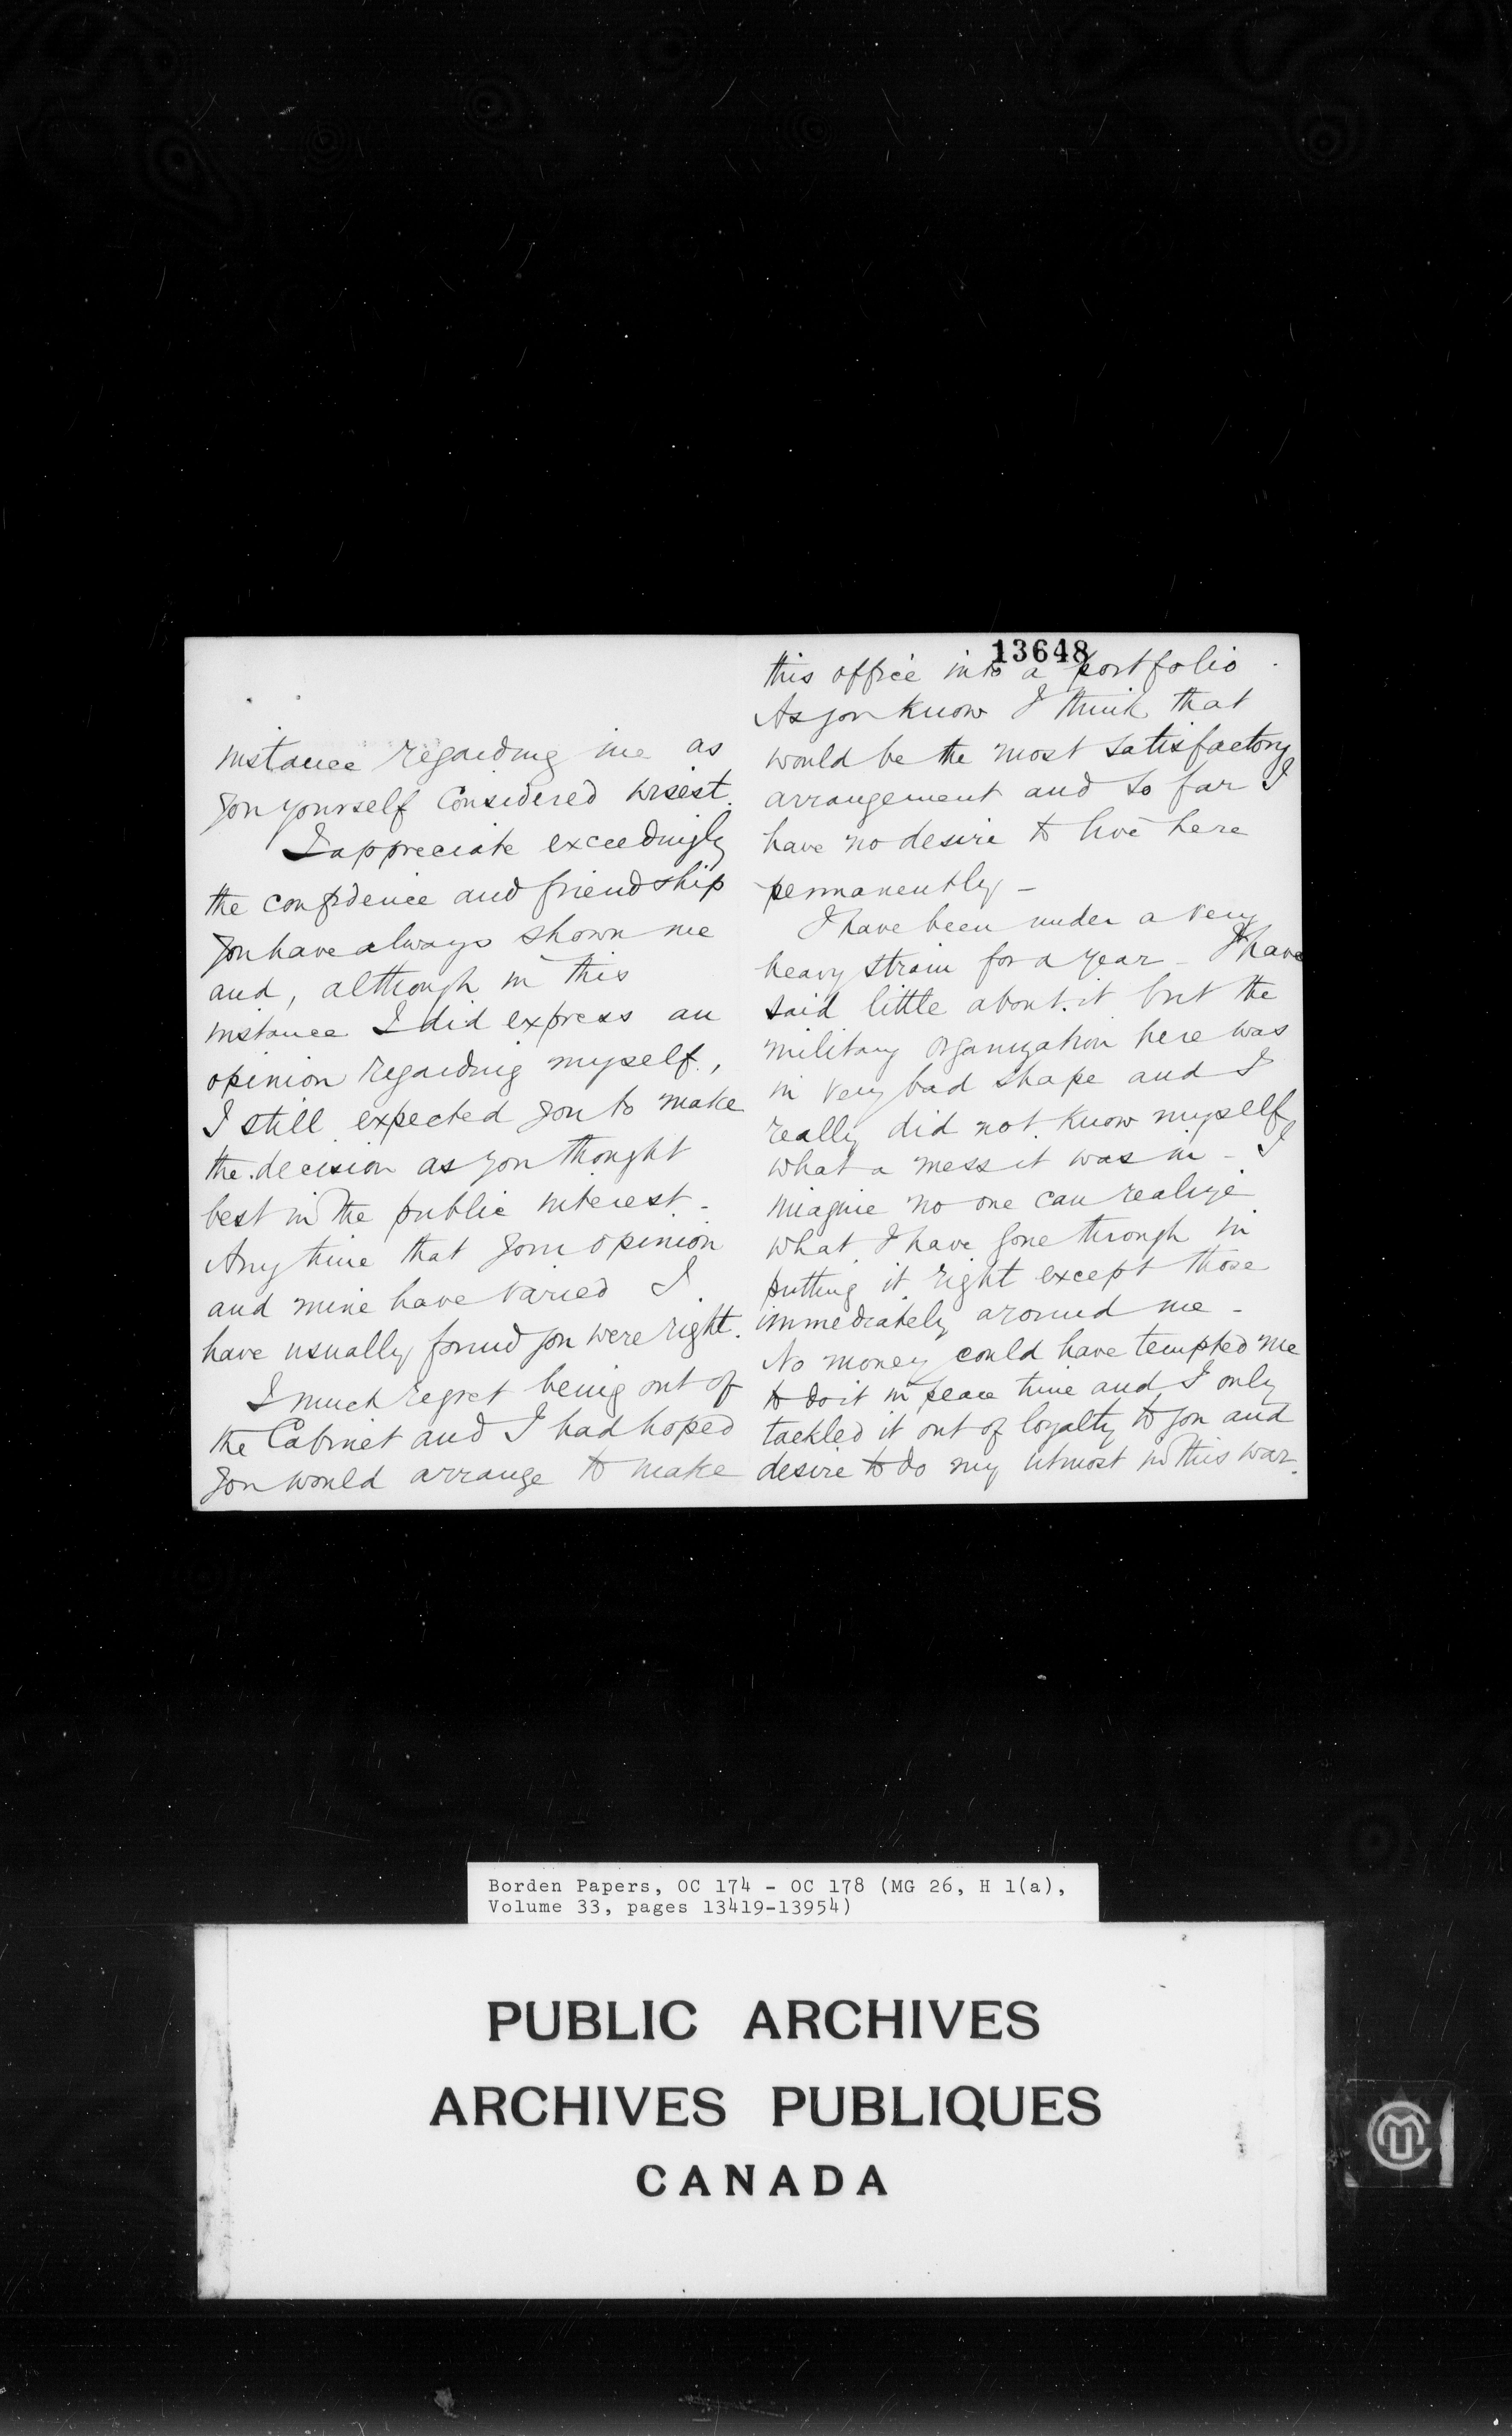 instance regarding me as
you yourself considered wisest.
I appreciate exceedingly
the confidence and friendship
you have always shown me
and, although in this
instance I did express an
opinion regarding myself,
I still expected you to make
the decision as you thought
best in the public interest -
Any time that your opinion
and mine have varied I
have usually found you were right.
I much regret being out of
the Cabinet and I had hoped
you would arrange to make
13648
this office into a portfolio
As you know I think that
would be the most satisfactory
arrangement and so far I
have no desire to live here
permanently -
I have been under a very
heavy strain for a year - I have
said little about it but the
military organization here was
in very bad shape and I
really did not know myself
what a mess it was in - I
imagine no one can realize
what I have gone through in
putting it right except those
immediately around me -
No money could have tempted me
to do it in peace time and I only
tackled it out of loyalty to you and
desire to do my utmost in this war.
Borden Papers, OC 174 - OC 178 (MG 26, H 1(a),
Volume 33, pages 13419-13954)
PUBLIC ARCHIVES
ARCHIVES PUBLIQUES
CANADA